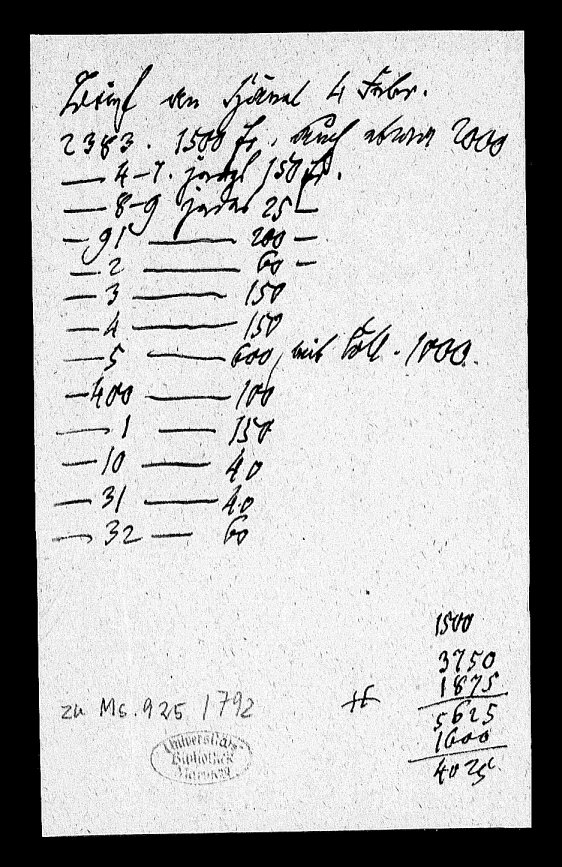 Brief an Hänel 4 Febr.
2383. 1500 Fr., auch etwa 2000
— 4-7. jedes 150 Fr.
— 8-9 jedes 25 —
— 91 — 200 —
— 2 — 60 —
— 3 — 150
— 4 — 150
— 5 — 600, mit Coll. 1000.
— 400 — 100
— 1 — 150
— 10 — 40
— 31 — 40
— 32 — 60
1500
3750
1875
5625
1600
4025
zu Ms. 925 / 792
Universitäts
Bibliothek
Marburg